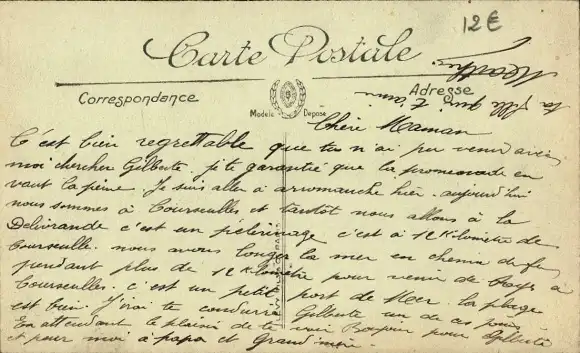 12€
Carte Postale
Correspondance
Adresse
Modèle Déposé
ta fille qui t'aime
Marthe
Chère Maman
C'est bien regrettable que tu n'ai pu venir avec
moi chercher Gilberte je te garantie que la promenade en
vaut la peine. Je suis aller a arromanche hier. aujourd'hui
nous sommes à Courseulles et tantôt nous allons à la
Delivrande c'est un pélerinage c'est a 12 Kilomètre de
Courseulle. nous avons longer la mer en chemin de fer
pendant plus de 12 kilomètre pour venir de a
Courseulles. c'est un petit port de Mer. la plage
est bien. J'irai te conduire Gilberte un de ces jours
En attendant le plaisir de te voir Bonjour pour Gilberte
et pour moi à papa et Grand'mère.